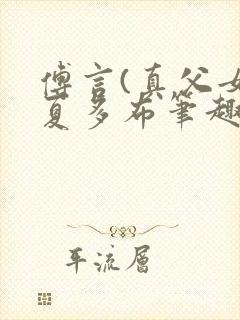 傅言(真父女
夏多布笔趣
平流层